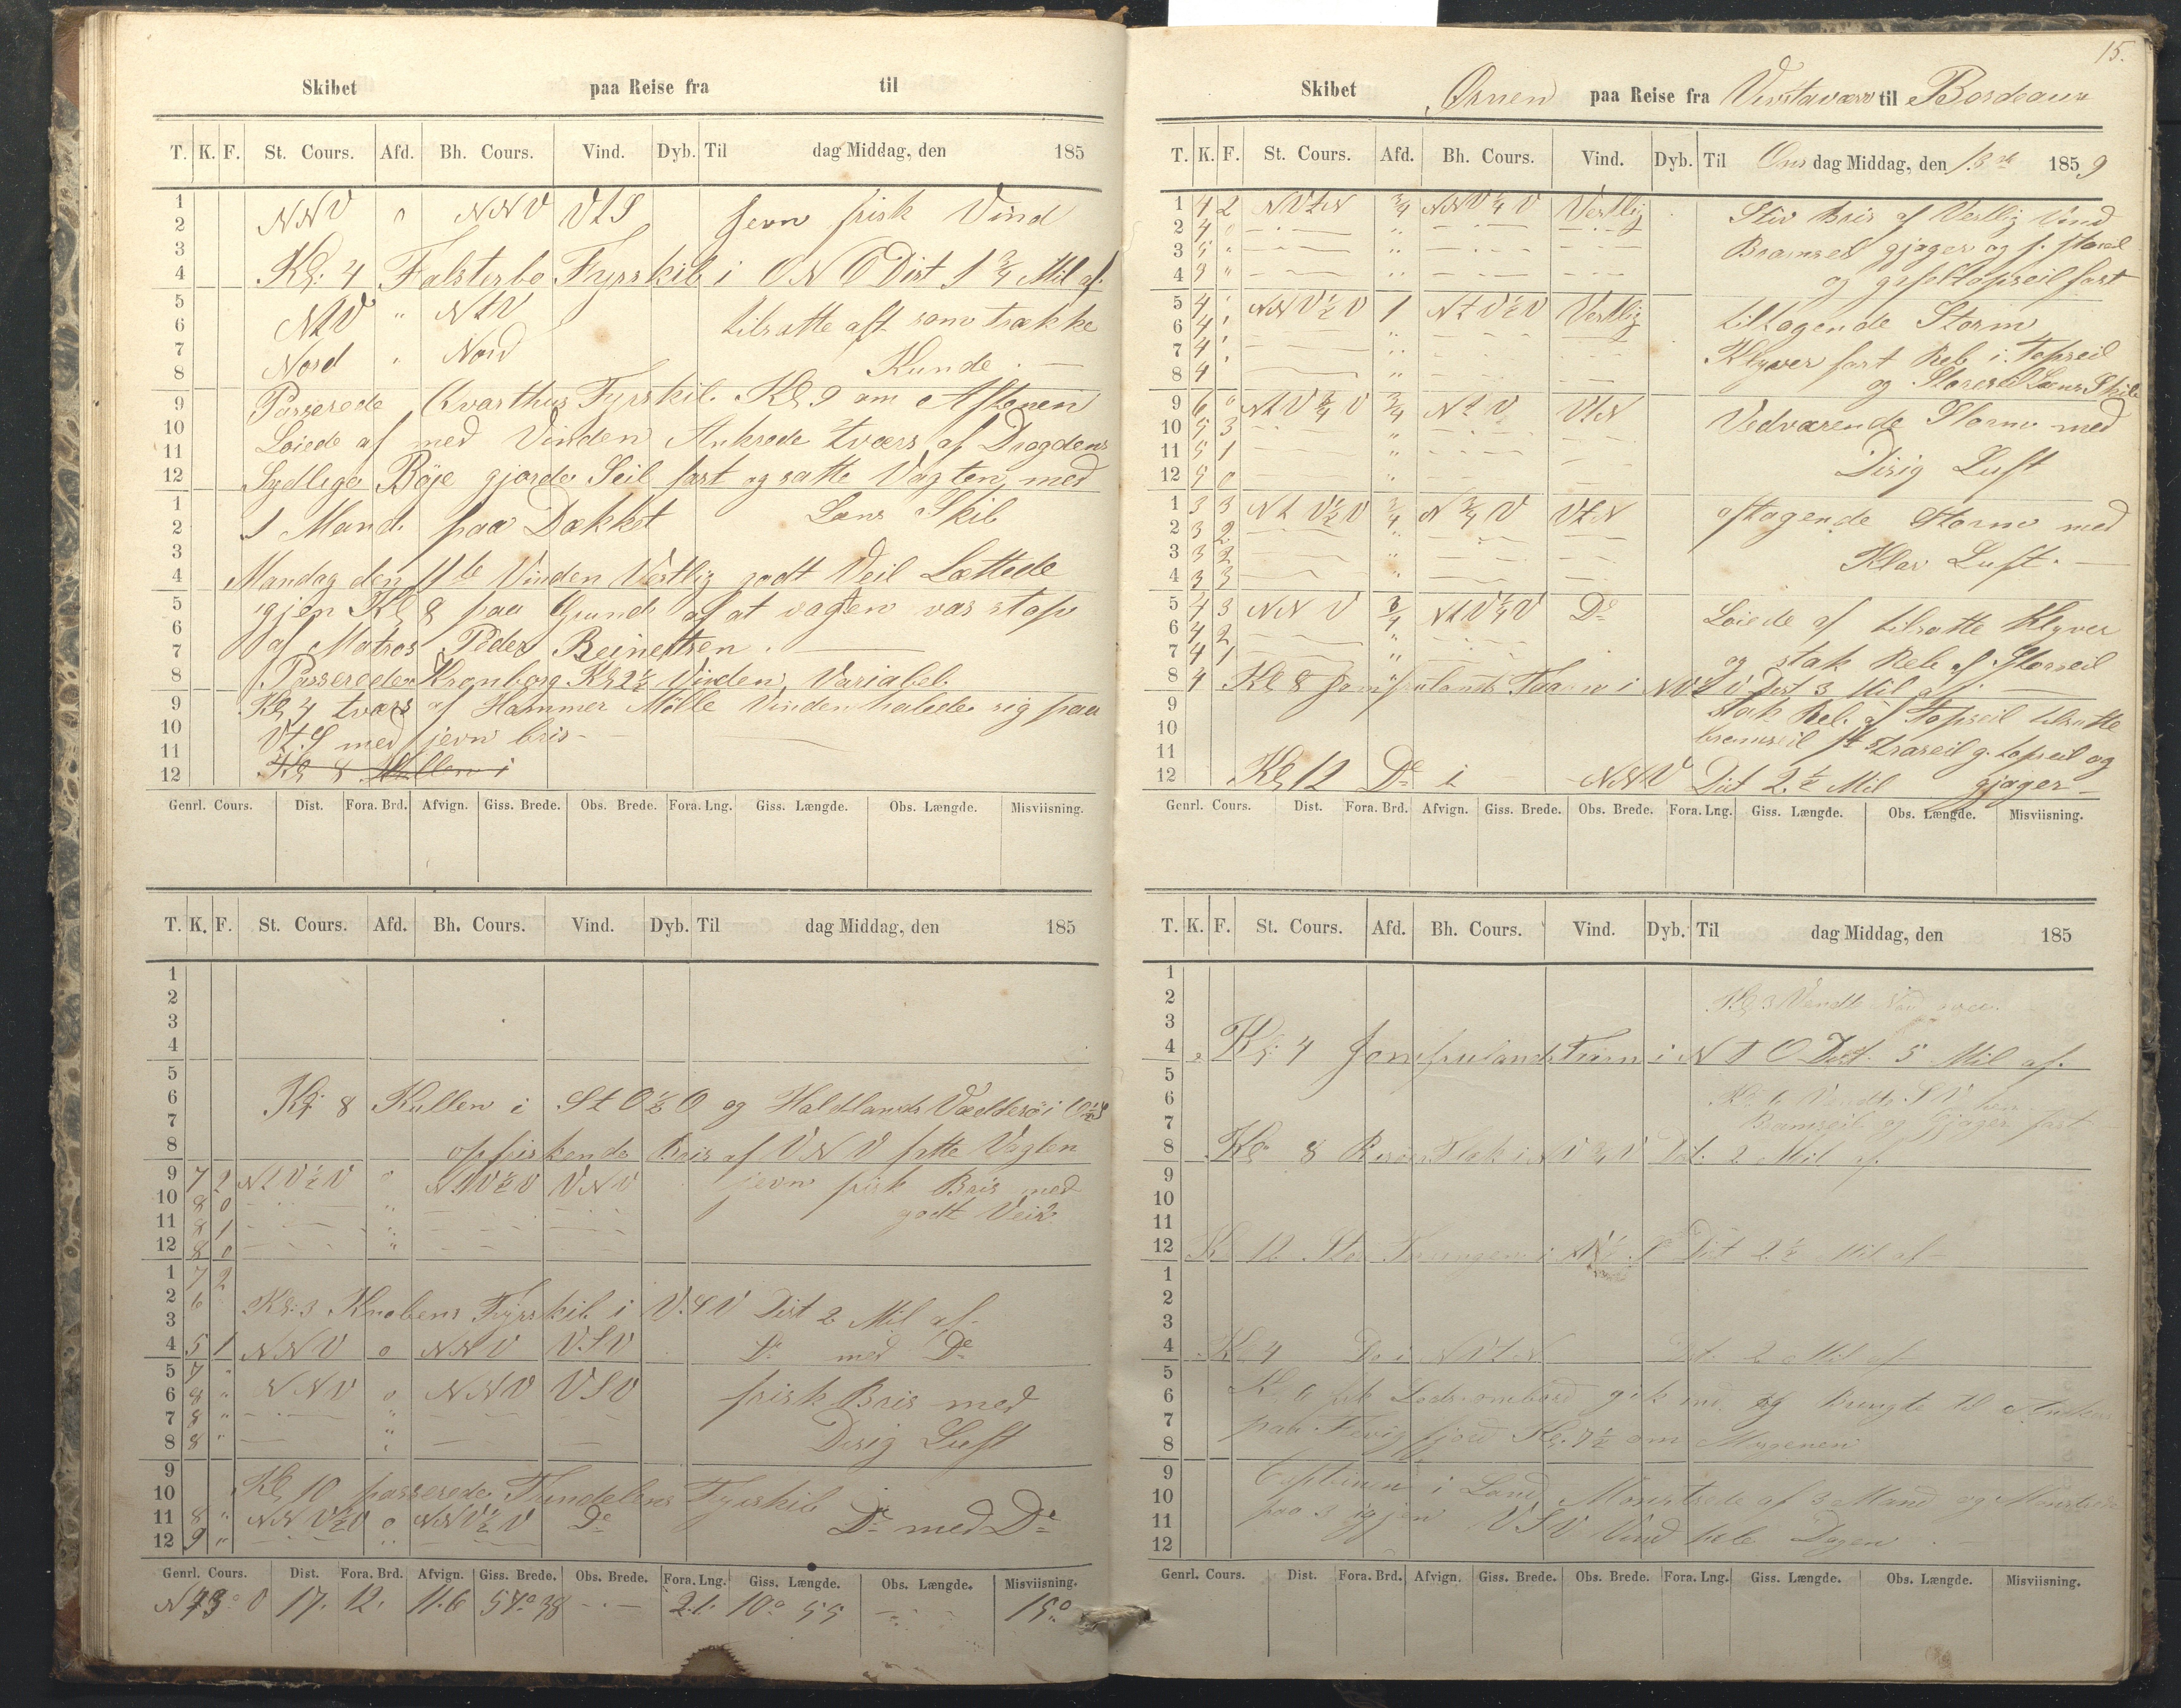 Skibet paa Reise fra til
T. K. F. St. Cours. Afd. Bh. Cours. Vind. Dyb. Til dag Middag, den 185
1
2 NNV 0 NNV VtS Jevn frisk Vind
3
4 Kl: 4 Falsterbo Fyrskib i ONO Dist 1 3/4 Mil af.
5
6 NtV " NtV tilsatte alt som trække
7
8 Nord " Nord Kunde. —
9 Passerede Fyrskib. Kl 9 om Aftenen
10
11 Löiede af med Vinden Ankrede tværs af Dragdens
12 Sydlige Böje gjorde Seil fast og satte Vagten, med
1
2 1 Mand paa Dækket Læns Skib
3
4 Mandag den 11te Vinden Vestlig godt Veir Lættede
5 igjen Kl 8 paa Grund af at vagten var
6
7 af Matros Peder
8 Passerede Kronborg Kl 2 1/2 Vinden Variabel
9 Kl 4 tværs af Hammer Mölle Vinden halede sig paa
10 VtS med jevn bris -
11
12 Kl 8 Kullen i
Genrl. Cours. Dist. Fora. Brd. Afvign. Giss. Brede. Obs. Brede. Fora. Lng. Giss. Længde. Obs. Længde. Misviisning.
T. K. F. St. Cours. Afd. Bh. Cours. Vind. Dyb. Til dag Middag, den 185
1
2
3
4
5
6 Kl: 8 Kullen i StO 1/2 O og Haldlands Væderö i
7
8 opfriskende Bris af VNV satte Vagten
9 7 2 NtV 1/2 V 0 NtV 1/2 V VNV jevn frisk Bris med
10 8 0 " godt Veir
11 8 1 "
12 8 0 "
1 7 2
2 6
3 Kl: 3 Knobens Fyrskib i VSV Dist 2 Mil af.
4 5 1 NNV 0 NNV VSV Do med Do
5 7 "
6 8 " NNV 0 NNV VSV frisk Bris med
7 8 " "
8 8 " " Disig Luft
9
10 Kl 10 passerede Trindelens Fyrskib
11 8 " NNV 1/2 V 0 NNV 1/2 V Do Do med Do
12 9 " "
Genrl. Cours. Dist. Fora. Brd. Afvign. Giss. Brede. Obs. Brede. Fora. Lng. Giss. Længde. Obs. Længde. Misviisning.
N 73° O 17. 12. 11.6 57° 38 - - 21. 10° 55 - 15°
15.
Skibet Ørnen paa Reise fra til Bordeaux
T. K. F. St. Cours. Afd. Bh. Cours. Vind. Dyb. Til Ons dag Middag, den 13de 1859
1 4 2 NVtN 3/4 NNV 1/4 V Vestlig Stiv Bris af Vestlig Vind
2 4 0 "
3 5 " " Bramseil gjager og st. staseil
4 9 " " og gaffeltopseil fast
5 4 " NNV 1/2 V 1 NtV 1/2 V Vestlig tiltagende Storm
6 4 " "
7 4 " " Klyver fast Reb i Topseil
8 4 " og Storseil Læns Skib
9 6 0 NtV 3/4 V 3/4 NtV VtN Vedvarende Storm med
10 5 3
11 5 1 " Disig Luft
12 5 0 "
1 3 3 NtV 1/2 V 3/4 N 3/4 V VtN aftagende Storm med
2 3 2 "
3 3 2 " Klar Luft. —
4 3 3 "
5 4 3 NNV 3/4 NtV 1/4 V Do Löiede af tilsatte Klyver
6 4 2 "
7 4 1 " og stak Reb af Storseil
8 4 Kl 8 Jomfrulands Taarn i Dist 3 Mil af.
9 stak Reb af Topseil tilsatte
10 bramseil g. topseil og
11
12 Kl 12 Do i NNV Dist 2 1/2 Mil gjager -
Genrl. Cours. Dist. Fora. Brd. Afvign. Giss. Brede. Obs. Brede. Fora. Lng. Giss. Længde. Obs. Længde. Misviisning.
T. K. F. St. Cours. Afd. Bh. Cours. Vind. Dyb. Til dag Middag, den 185
1
2 Kl 3 Vendt Nord over
3
4 Kl: 4 Jomfrulands Taarn i NtO Dist. 5 Mil af.
5
6 Kl 6 Vendt SV
7 Bramseil og Gjager fast
8 Kl 8 i 3/4 V Dist. 2 Mil af
9
10
11
12 Kl 12 Store i Dist 2 1/2 Mil af -
1
2
3
4 Kl 4 Do i NVtN Dist. 2 Mil af
5
6 Kl 6 fik Lods ombord gik ind og bragte til Ankers
7
8 paa Fevig fjord Kl. 7 1/2 om Morgenen
9 Captainen i Land Mönstrede af 3 Mand og Mönstrede
10
11 paa 3 igjen VSV Vind hele Dagen
12
Genrl. Cours. Dist. Fora. Brd. Afvign. Giss. Brede. Obs. Brede. Fora. Lng. Giss. Længde. Obs. Længde. Misviisning.